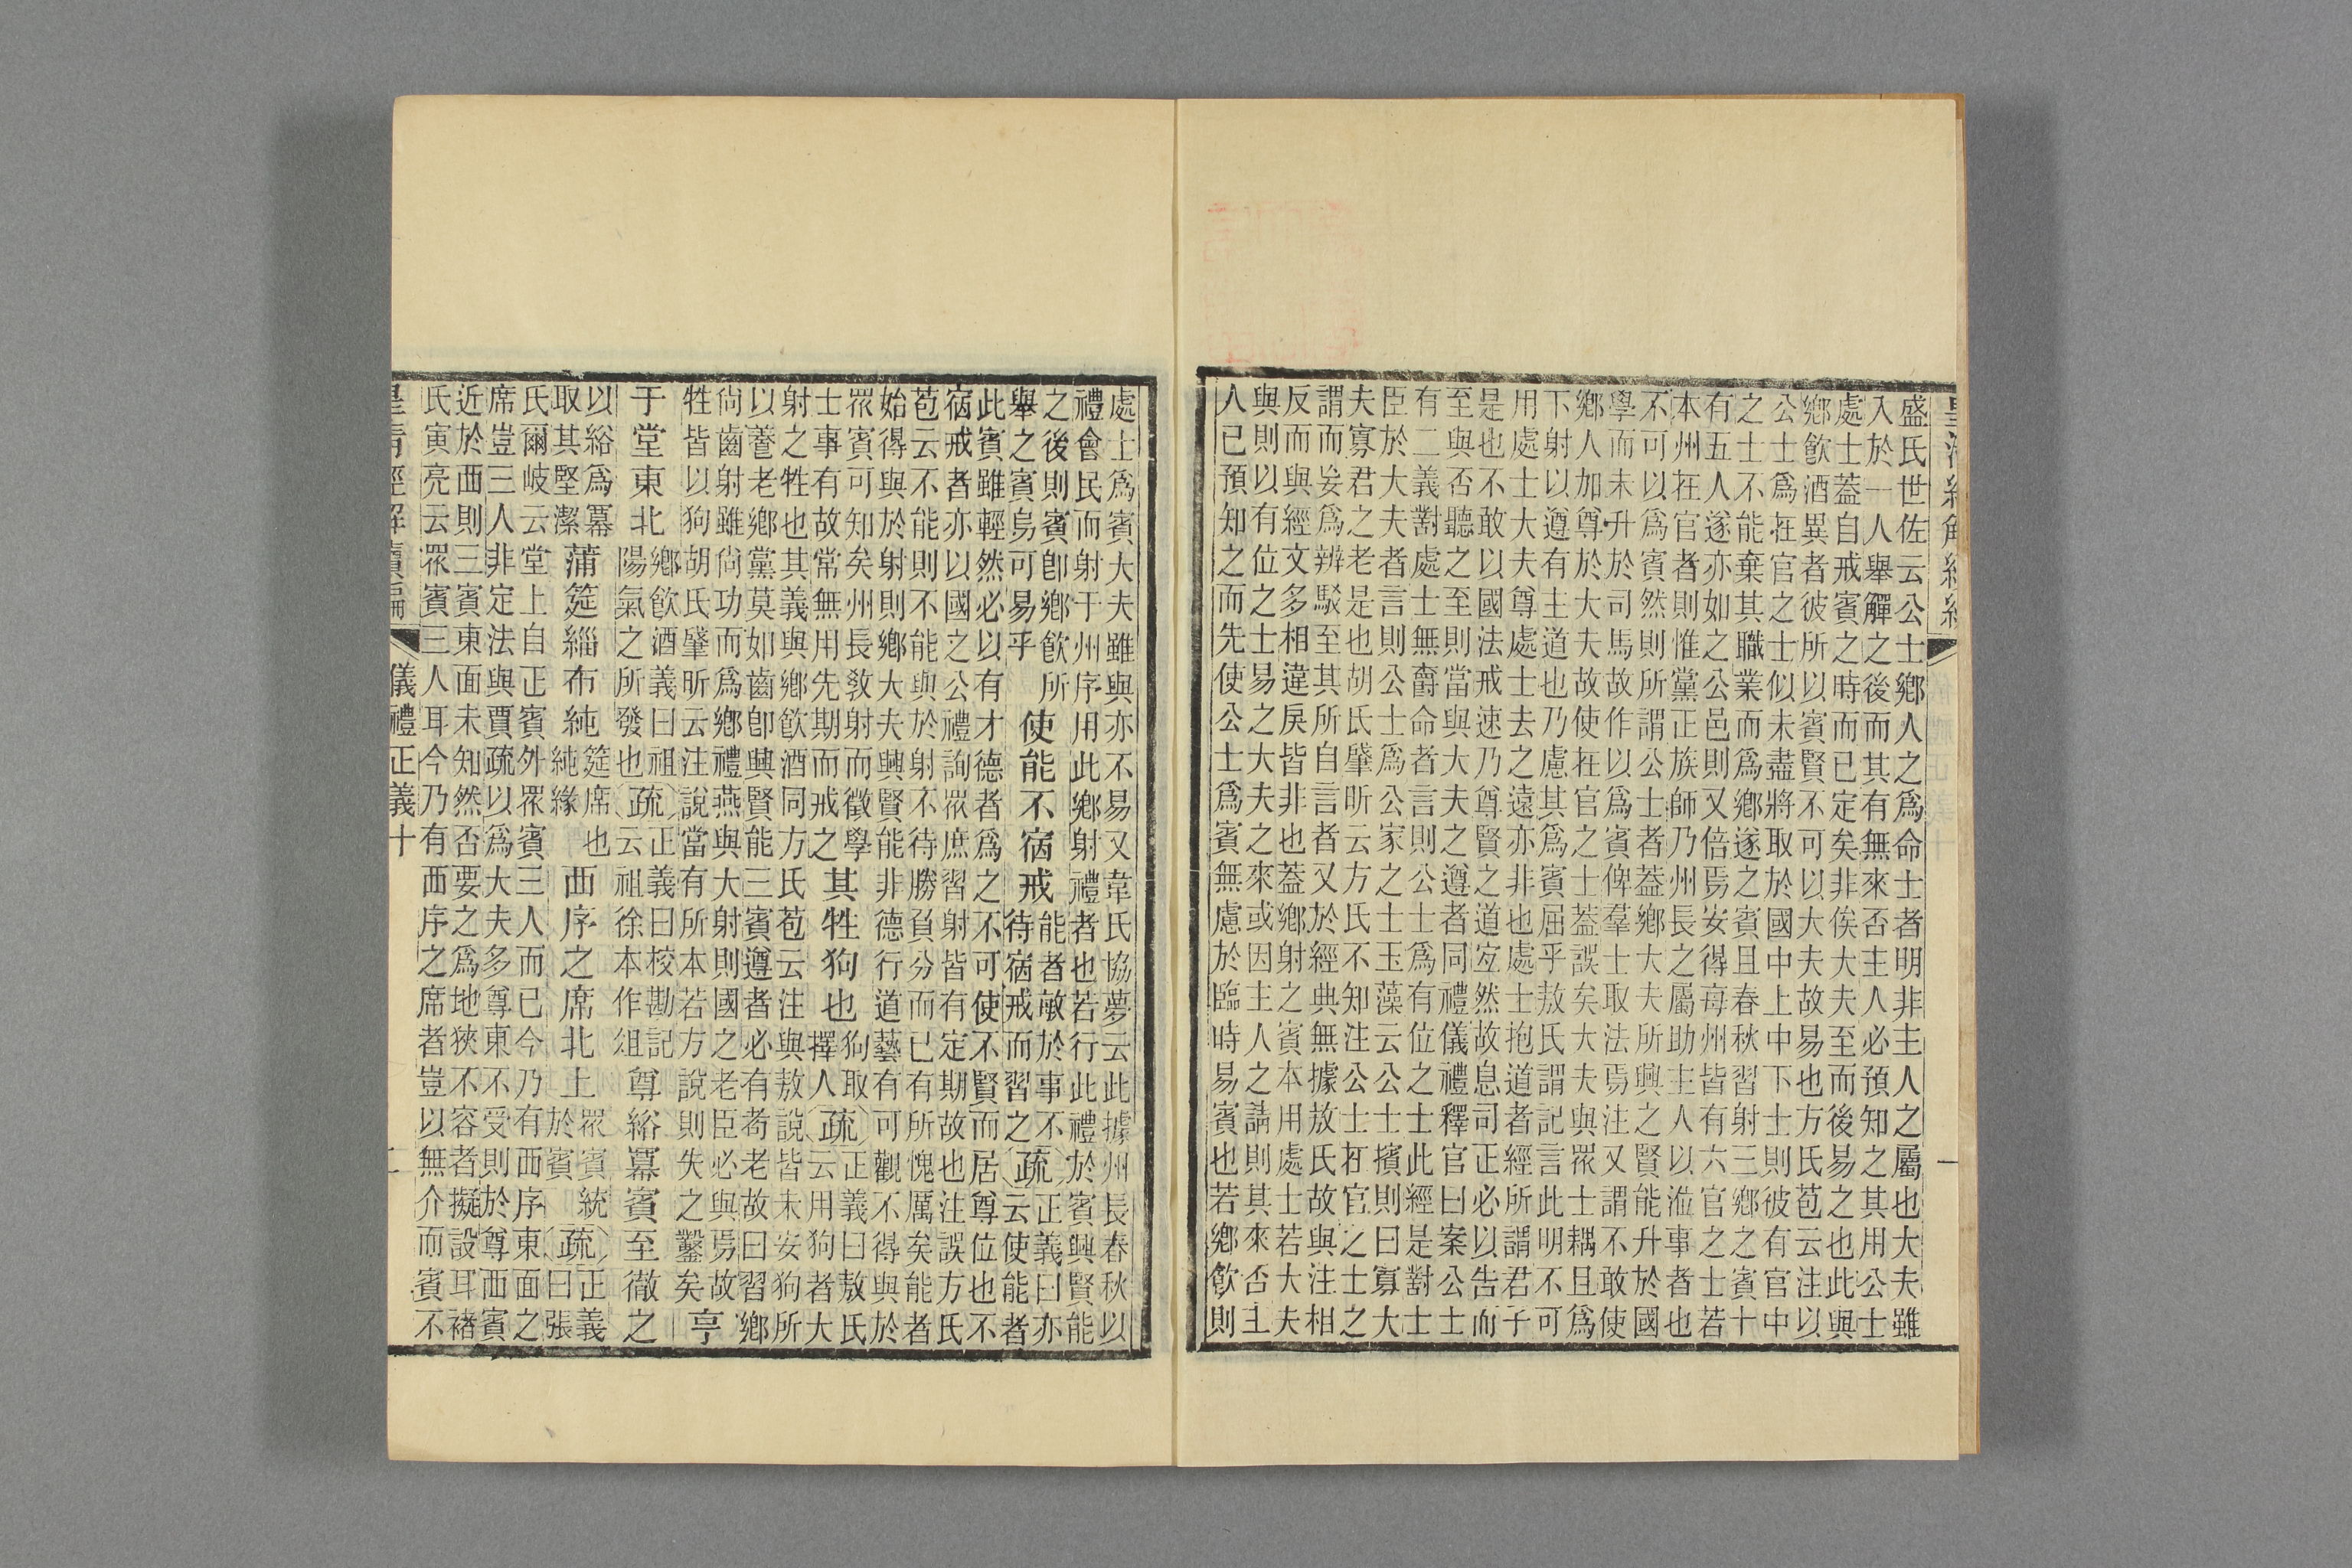 皇清經解續編
盛氏世佐云公士鄉人之爲命士者明非主人之屬也大夫雖
入於一人舉觶之後而其有無來否主人必預知之其用公士
處士蓋自戒賓之時而已定矣非俟大夫至而後易之也此與
鄉飮酒異者彼所以賓賢不可以大夫故易也方氏苞云注以
公士爲在官之士似未盡將取於國中上中下士則彼有官中
之士不能棄其職業而爲鄉遂之賓且春秋習射三鄉之賓十
有五人遂亦如之公邑則又倍焉安得每州皆有六官之士若
本州在官者則惟黨正族師乃州長之屬助主人以涖事者也
不可以爲賓然則所謂公士者蓋鄉大夫所興之賢能升於國
學而未升於司馬故作以爲賓俾羣士取法焉注又謂不敢使
鄉人加尊於大夫故使在官之士蓋誤矣大夫與眾士耦且爲
下射以遵有主道也乃慮其爲賓屈乎敖氏謂記言此明不可
用處士大夫尊處士去之遠亦非也處士抱道者經所謂君子
是也不敢以國法戒速乃尊賢之道宐然故息司正必以告而
至與否聽之至則當與大夫之遵者同禮儀禮釋官曰案公士
有二義對處士無爵命者言則公士爲有位之士此經是對士
臣於大夫者言則公士爲公家之士玉藻云公士擯則曰寡大
夫寡君之老是也胡氏肇昕云方氏不知注公士在官之士之
謂而妄爲辨駁至其所自言者又於經典無據敖氏故與注相
反而與經文多相違戾皆非也蓋鄉射之賓本用處士若大夫
與則以有位之士易之大夫之來或因主人之請則其來否主
人已預知之而先使公士爲賓無慮於臨時易賓也若鄉飮則
處士爲賓大夫雖與亦不易又韋氏協夢云此據州長春秋以
禮會民而射于州序用此鄉射禮者也若行此禮於賓興賢能
之後則賓卽鄉飮所
舉之賓烏可易乎
使能不宿戒
能者敏於事不
待宿戒而習之
疏
正義曰亦
云使能者
此賓雖輕然必以有才德者爲之不可使不賢而居尊位也不
宿戒者亦以國之公禮詢眾庶習射皆有定期故也注誤方氏
苞云不能則不能與於射不待勝負分而已有所愧厲矣能者
始得與於射則鄉大夫興賢能非德行道藝有可觀不得與於
眾賓可知矣州長教射而徵學
士事有故常無用先期而戒之
其牲狗也
狗取
擇人
疏
正義曰敖氏
云用狗者大
射之牲也其義與鄉飮酒同方氏苞云注與敖說皆未安狗所
以養老鄉黨莫如齒卽興賢能三賓遵者必有耇老故曰習鄉
尙齒射雖尙功而爲鄉禮燕與大射則國之老臣必與焉故
牲皆以狗胡氏肇昕云注說當有所本若方說則失之鑿矣
亨
于堂東北
鄉飮酒義曰祖
陽氣之所發也
疏
正義曰校勘記
云祖徐本作俎
尊綌冪賓至徹之
以綌爲冪
取其堅潔
蒲筵緇布純
筵席也
純緣
西序之席北上
眾賓統
於賓
疏
正義
曰張
氏爾岐云堂上自正賓外眾賓三人而已今乃有西序東面之
席豈三人非定法與賈疏以爲大夫多尊東不受則於尊西賓
近於西則三賓東面未知然否要之爲地狹不容者擬設耳褚
氏寅亮云眾賓三人耳今乃有西序之席者豈以無介而賓不
皇清經解續編 儀禮正義十 二